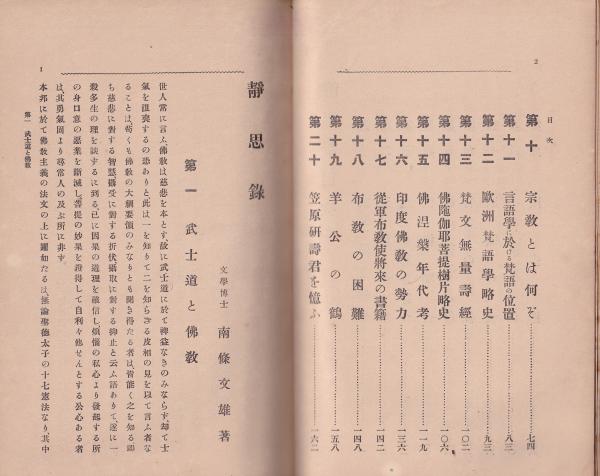 2
目次
第十 宗教とは何ぞ 七四
第十一 言語學に於ける梵語の位置 八三
第十二 歐洲梵語學略史 九三
第十三 梵文無量壽經 一〇二
第十四 佛陀伽耶菩提樹片略史 一〇六
第十五 佛涅槃年代考 一一九
第十六 印度佛教の勢力 一三六
第十七 從軍布教使將來の書籍 一四二
第十八 布教の困難 一四八
第十九 羊公の鶴 一五八
第二十 笠原研壽君を憶ふ 一六二
靜思錄
文學博士 南條文雄著
第一 武士道と佛教
世人常に言ふ、佛教は慈悲を本とす故に武士道に於て裨益なきのみならず、却て士
氣を沮喪するの恐ありと此は一を知りて二を知らざる皮相の見を以て言ふ者な
ることは苟くも佛教の大綱要領のみなりとも聞き得たる者は皆能く之を知る即
ち慈悲に對する智慧、攝受に對する折伏、攝取に對する抑止と云ふ語ありて、遂に一
殺多生の理を談ずるに到る、已に因果の道理を確信し、煩惱の私心より發起する所
の身口意の惡業を斷滅し、菩提の妙果を證得して自利々他せんとする公心ある者
は、其勇氣固より尋常人の及ぶ所に非ず。
本邦に於て佛教主義の法文の上に躍如たるは、無論聖德太子の十七憲法なり、其中
第一 武士道と佛教
1